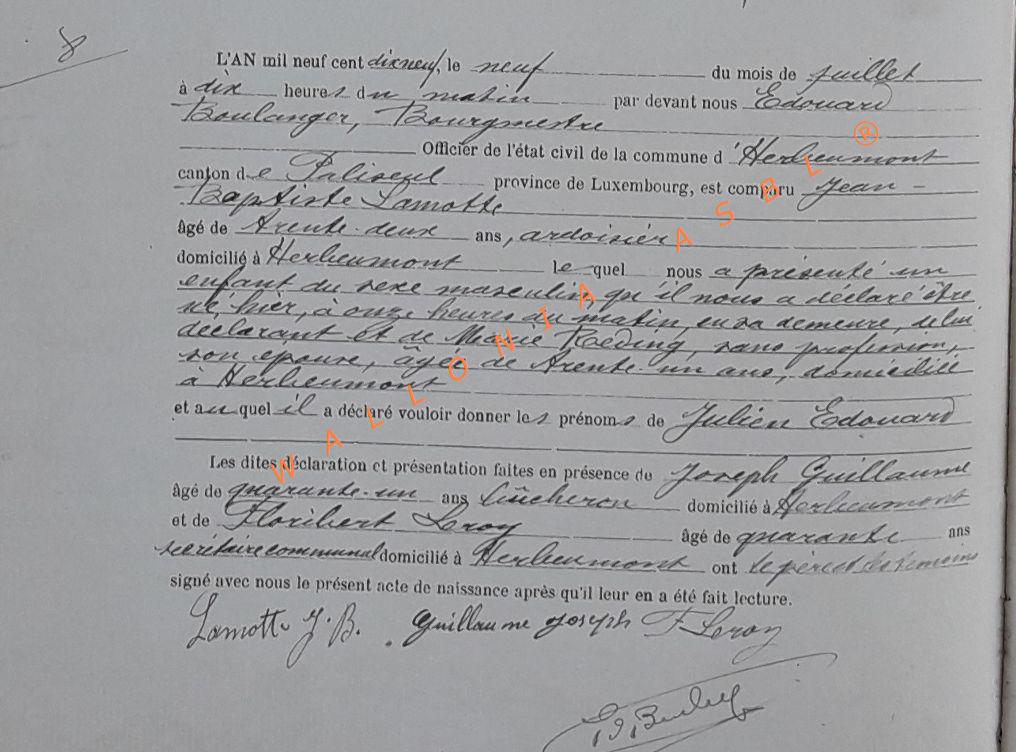 8
L'AN mil neuf cent dixneuf, le neuf du mois de juillet
à dix heures du matin par devant nous Edouard
Boulanger, Bourgmestre
Officier de l'état civil de la commune d'Herbeumont
canton de Paliseul province de Luxembourg, est comparu Jean-
Baptiste Lamotte
âgé de trente-deux ans, ardoisier
domicilié à Herbeumont lequel nous a présenté un
enfant du sexe masculin qu'il nous a déclaré être
né, hier, à onze heures du matin, en sa demeure, de lui
déclarant et de Marie Reding, sans profession,
son épouse, âgée de trente-un ans, domiciliée
à Herbeumont
et auquel il a déclaré vouloir donner les prénoms de Julien Edouard
Les dites déclaration et présentation faites en présence de Joseph Guillaume
âgé de quarante-un ans bûcheron domicilié à Herbeumont
et de Floribert Leroy âgé de quarante ans
secrétaire communal domicilié à Herbeumont ont le père et les témoins
signé avec nous le présent acte de naissance après qu'il leur en a été fait lecture.
Lamotte J. B. Guillaume Joseph F Leroy
WALLONIA ASBL ®